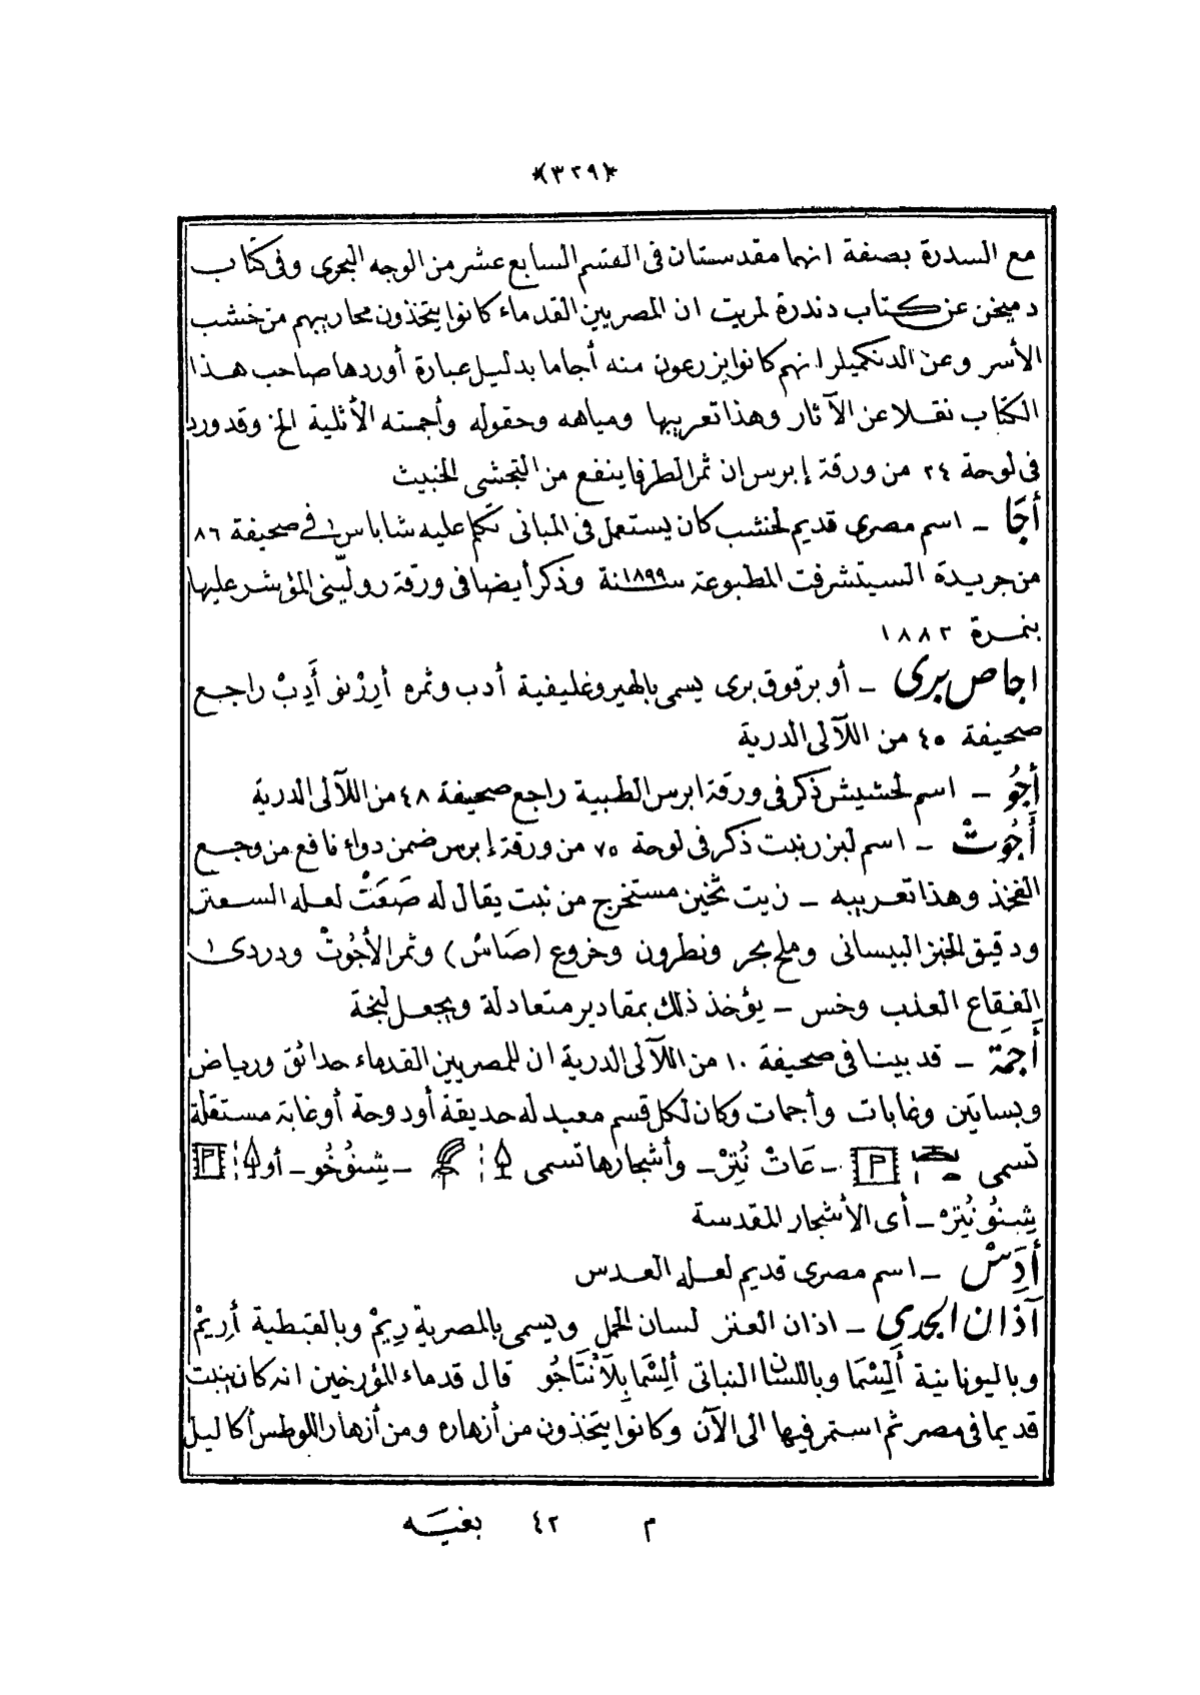 *(٣٢٩)*
مع السدرة بصفة انهما مقدستان فى القسم السابع عشر من الوجه البحرى وفى كتاب
دميخن عن كتاب دندرة لمريت ان المصريين القدماء كانوا يتخذون محاريبهم من خشب
الأسر وعن الدنكميلر انهم كانوا يزرعون منه أجاما بدليل عبارة أوردها صاحب هذا
الكتاب نقلا عن الآثار وهذا تعريبها ومياهه وحقوله وأجمته الأثلية الخ وقد ورد
فى لوحة ٢٤ من ورقة إبرس ان ثمر الطرفا ينفع من التجشى الخبيث
أجَا - اسم مصرى قديم لخشب كان يستعمل فى المبانى تكلم عليه شاباس فى صحيفة ٨٦
من جريدة السيتشرفت المطبوعة سنة ١٨٩٩ وذكر أيضا فى ورقة روليّنى المؤشر عليها
بنمرة ١٨٨٢
اجاص برى - أو برقوق برى يسمى بالهيروغليفية أدب وثمره أرِزْنو أَدِبْ راجع
صحيفة ٤٥ من اللآلى الدرية
أجُو - اسم لحشيش ذكر فى ورقة ابرس الطبية راجع صحيفة ٤٨ من اللآلى الدرية
أَجُوتْ - اسم لبزر نبت ذكر فى لوحة ٧٥ من ورقة إبرس ضمن دواء نافع من وجع
الفخذ وهذا تعريبه - زيت ثخين مستخرج من نبت يقال له صَعَتْ لعله السعتر
ودقيق الخبز البيسانى وملح بحر ونطرون وخروع (صَاسْ) وثمر الأجُوتْ ودردى
الفقاع العذب وخس - يؤخذ ذلك بمقادير متعادلة ويجعل لبخة
أَجَمَة - قد بينا فى صحيفة ١٠ من اللآلى الدرية ان للمصريين القدماء حدائق ورياض
وبساتين وغابات وأجمات وكان لكل قسم معبد له حديقة أودوحة أوغابة مستقلة
تسمى - عَاتْ نُتِرْ - وأشجارها تسمى - شِنوُخُو - أو
شِنوُ نُتِرْ - أى الأشجار المقدسة
أدِسْ - اسم مصرى قديم لعله العدس
آذان الجدي - اذان العنز لسان الحمل ويسمى بالمصرية رِيمْ وبالقبطية أرِيمْ
وباليونانية أَلِسْمَا وباللسان النباتى ألِسْمَا بِلَانْتَاجُو قال قدماء المؤرخين انه كان ينبت
قديما فى مصر ثم استمر فيها الى الآن وكانوا يتخذون من أزهاره ومن أزهار اللوطس أكاليل
م ٤٢ بغيـه